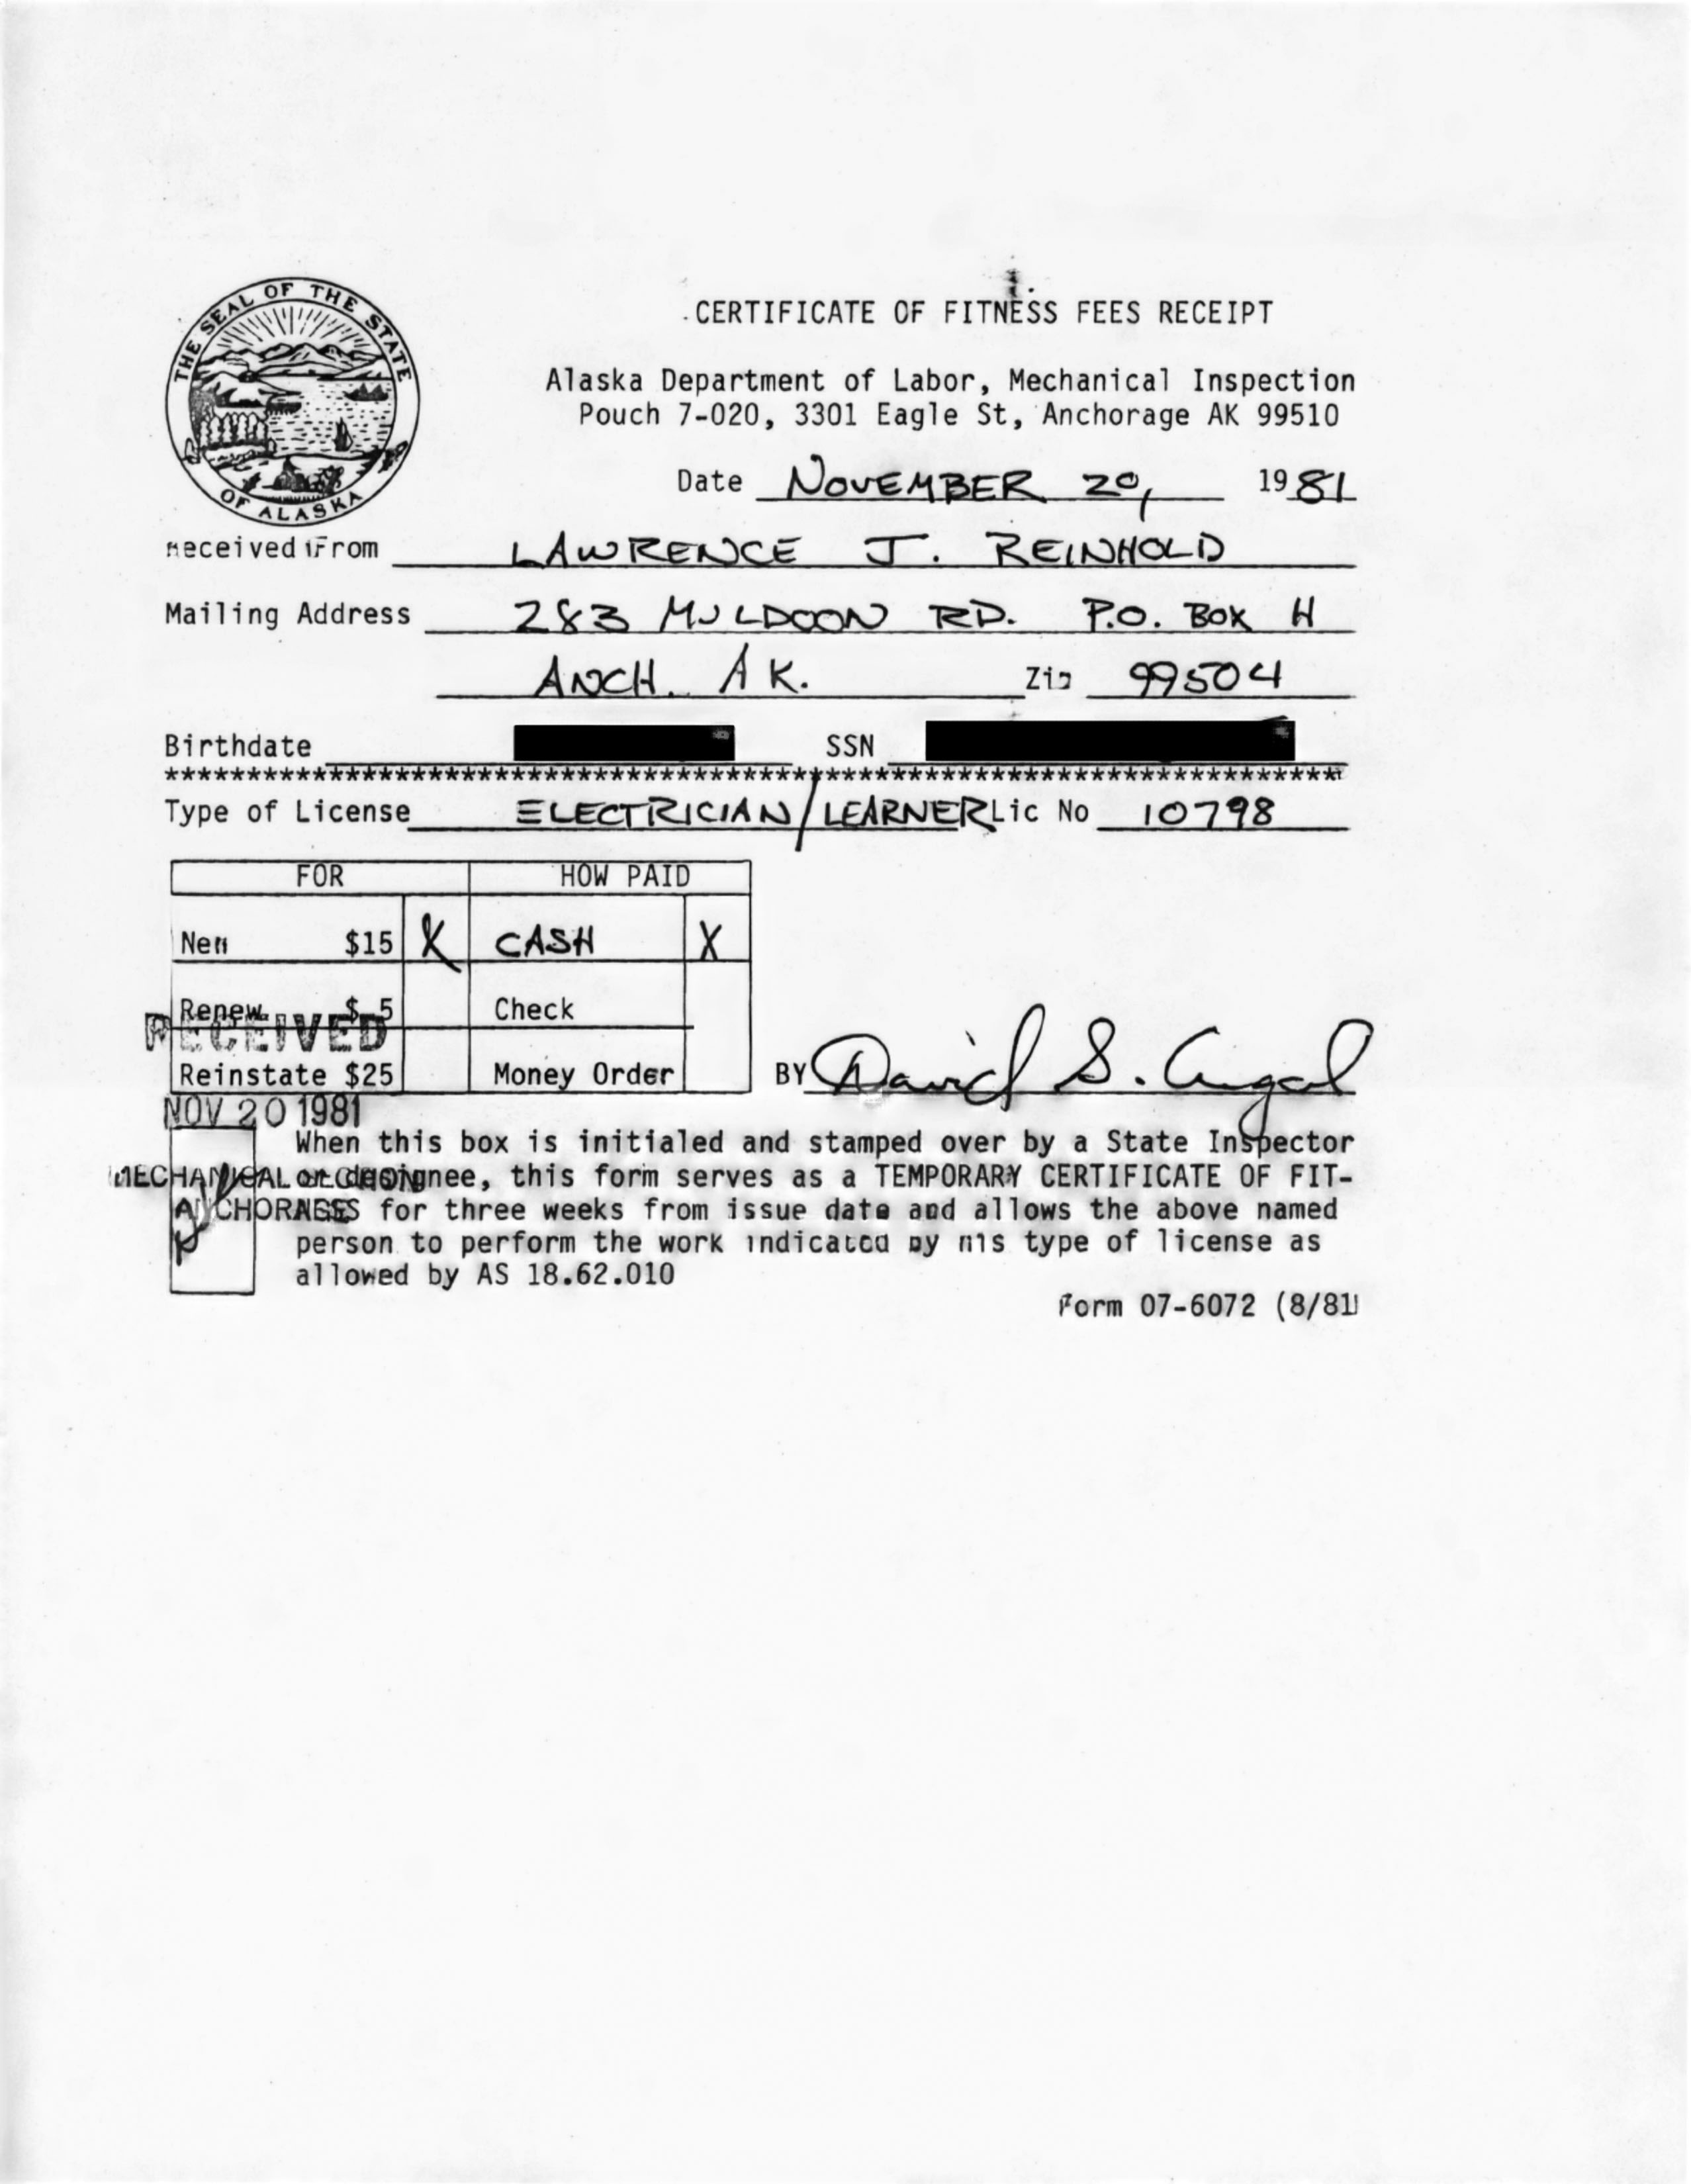 THE SEAL OF THE STATE
OF ALASKA
CERTIFICATE OF FITNESS FEES RECEIPT
Alaska Department of Labor, Mechanical Inspection
Pouch 7-020, 3301 Eagle St, Anchorage AK 99510
Date NOVEMBER 20, 1981
Received From LAWRENCE J. REINHOLD
Mailing Address 283 MULDOON RD. P.O. BOX H
ANCH. AK. Zip 99504
Birthdate SSN
************************************************************************
Type of License ELECTRICIAN/LEARNER Lic No 10798
FOR HOW PAID
New $15 X CASH X
Renew $ 5 Check
RECEIVED
Reinstate $25 Money Order BY David S.
NOV 20 1981
When this box is initialed and stamped over by a State Inspector
MECHANICAL
or designee, this form serves as a TEMPORARY CERTIFICATE OF FIT-
ANCHORAGE
NESS for three weeks from issue date and allows the above named
person to perform the work indicated by his type of license as
allowed by AS 18.62.010
Form 07-6072 (8/81)